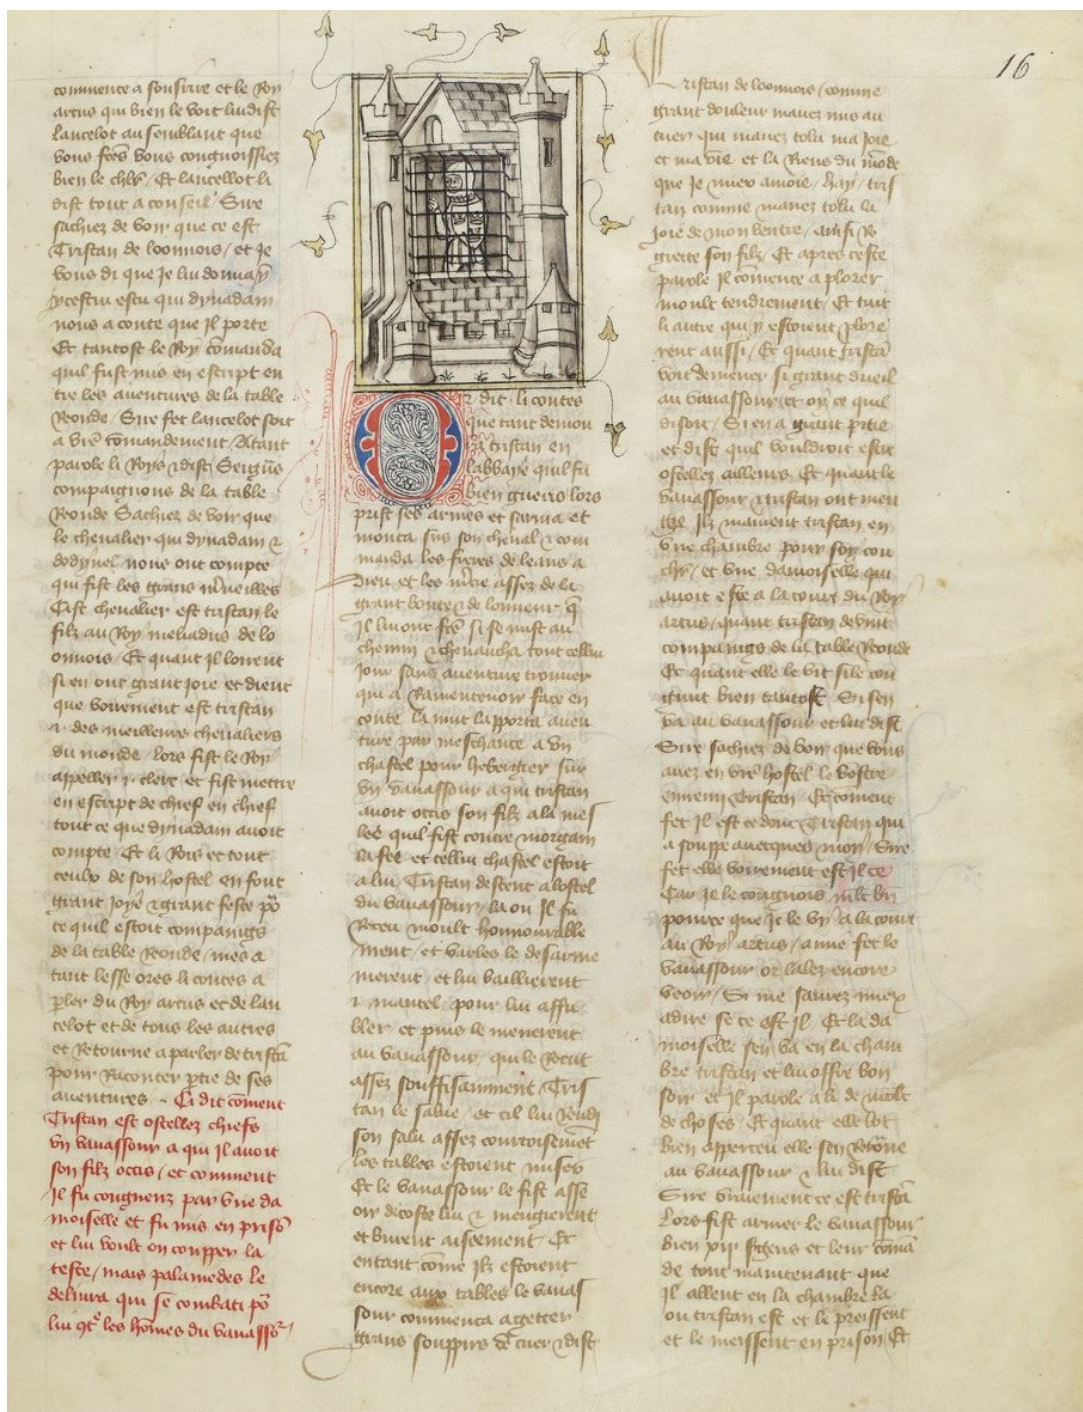 16
commence a sousrire et le Roy
artus qui bien le voit lui dist
lancelot au semblant que
vous fctes vous congnoissiez
bien le chlr / Et lancellot li
dist tout a conseil / Sire
sachiez de voir que ce est
Tristan de loonnois / et Je
vous di que Je lui donnay
ycestui escu qui dynadam
nous a conte que Jl porte
Et tantost le Roy comanda
quil fust mis en escript en
tre les aventures de la table
Reonde / Sire fet lancelot soit
a vre comandement / Atant
parole li Roys & dist / Seigns
compaignons de la table
Reonde Sachiez de voir que
le chevalier qui dynadam &
dodynel nous ont compte
qui fist les grans mveilles
Cist chevalier est tristan le
filz au Roy meliadus de lo
onnois / Et quant Jl loirent
si en ont grant Joie et dient
que voirement est tristan
.i. des meilleurs chevaliers
du monde / lors fist le Roy
appeller .i. clerc et fist mettre
en escript de chief en chief
tout ce que dynadam avoit
compte / Et li Rois et tout
ceulx de son hostel en font
grant Joye & grant feste po
ce quil estoit compaings
de la table Reonde / mes a
tant lesse ores li contes a
pler du Roy artus et de lan
celot et de tous les autres
et Retourne a parler de trista
pour Raconter ptie de ses
aventures - Ci dit coment
Tristan est ostellez chiefs
vn vavassour a qui Jl avoit
son filz occis / et comment
Jl fu congneuz par vne da
moiselle et fu mis en priso
et lui voult on coupper la
teste / mais palamedes le
delivra qui se combati po
lui 9tre les homes du vavasso
Or dit li contes
que tant demou
ra tristan en
labbaye quil fu
bien gueris lors
prist ses armes et sarma et
monta sus son cheval & com
manda les freres de leans a
dieu et les mcie assez de la
grant bonte & de lonneur q
Jl lui ont fcte si se mist au
chemin & chevaucha tout cellui
Jour sans aventure trouver
qui a Ramentevoir face en
conte la nuit lapporta aven
ture par meschance a vn
chastel pour hebergier sur
vn vavassour a qui tristan
avoit occis son filz a la mes
lee quil fist contre morgain
la fee et cellui chastel estoit
a lui Tristan descent a lostel
du vavassour / la ou Jl fu
Receu moult honnourable
ment / et varles le desarme
merent et lui baillierent
.i. mantel pour lui affu
bler et puis le menerent
au vavassour qui le Recut
assez souffisamment Tris
tan le salue et cil lui Rendi
son salu assez courtoisemet
les tables estoient mises
Et le vavassour le fist asse
oir decoste lui & mengierent
et burent aiseement / Et
entant come Jlz estoient
encore aux tables le vavas
sour commenca a getter
grans souppirs de cuer & dist
Tristan de loonnois / comme
grant douleur mavez mis au
cuer qui mavez tolu ma Joie
et ma vie et la Riens du mode
que Je miex amoie / hay / tris
tan comme mavez tolu la
Joie de mon ventre / ainsi Re
grette son filz / Et apres ceste
parole Jl comence a plorer
moult tendrement / Et tuit
li autre qui y estoient plore
rent aussi / Et quant trista
voit demener si grant dueil
au vavassour et oy ce quil
disoit / Si en a grant pitie
et dist quil vouldroit estre
ostellez ailleurs Et quant le
vavassour & tristan ont men
gie Jlz mainent tristan en
vne chambre pour soy cou
chr / et vne damoiselle qui
avoit este a la court du Roy
artus / quant tristan devint
compaings de la table Reonde
Et quant elle le vit si le con
gnut bien tantost Si sen
va au vavassour et lui dist
Sire sachiez de voir que vous
avez en vre hostel le vostre
ennemi tristan / Et coment
fet Jl est ce donc Tristan qui
a souppe avecques moy / Sire
fet elle voirement est Jl ce
Car Je le congnois mlt bn
pource que Je le vy a la court
au Roy artus / amie fet le
vavassour or lalez encore
veoir / Si me saurez miex
a dire se ce est Jl Et la da
moiselle sen va en la cham
bre tristan et lui offre bon
soir et Jl parole a le de mult
de choses Et quant elle lot
bien apperceu elle sen Retorne
au vavassour & lui dist
Sire vraiement ce est trista
Lors fist armer le vavassour
bien xij sergens et leur coma
de tout maintenant que
Jl allent en la chambre la
ou tristan est et le preissent
et le meissent en prison / Et